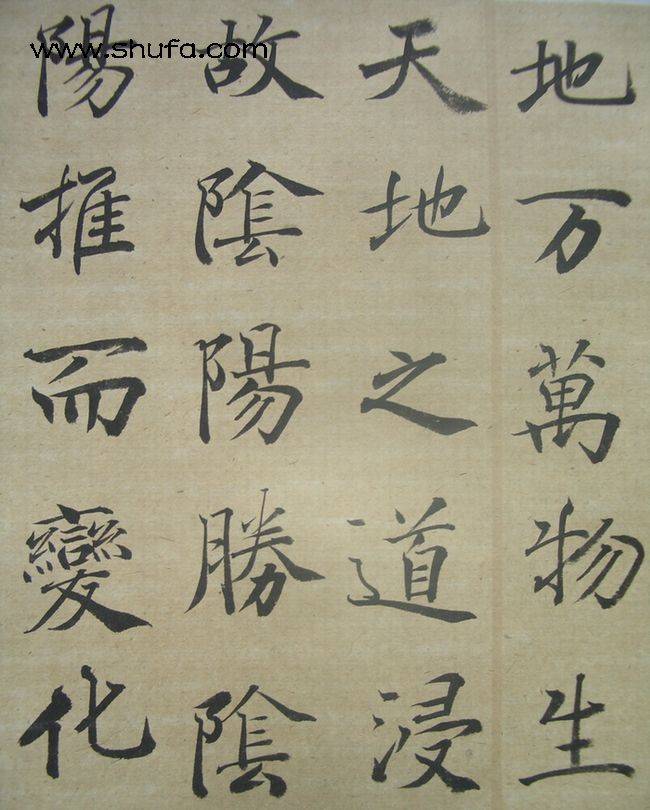 www.shufa.com
地万萬物生
天地之道浸
故陰陽勝陰
陽推而變化